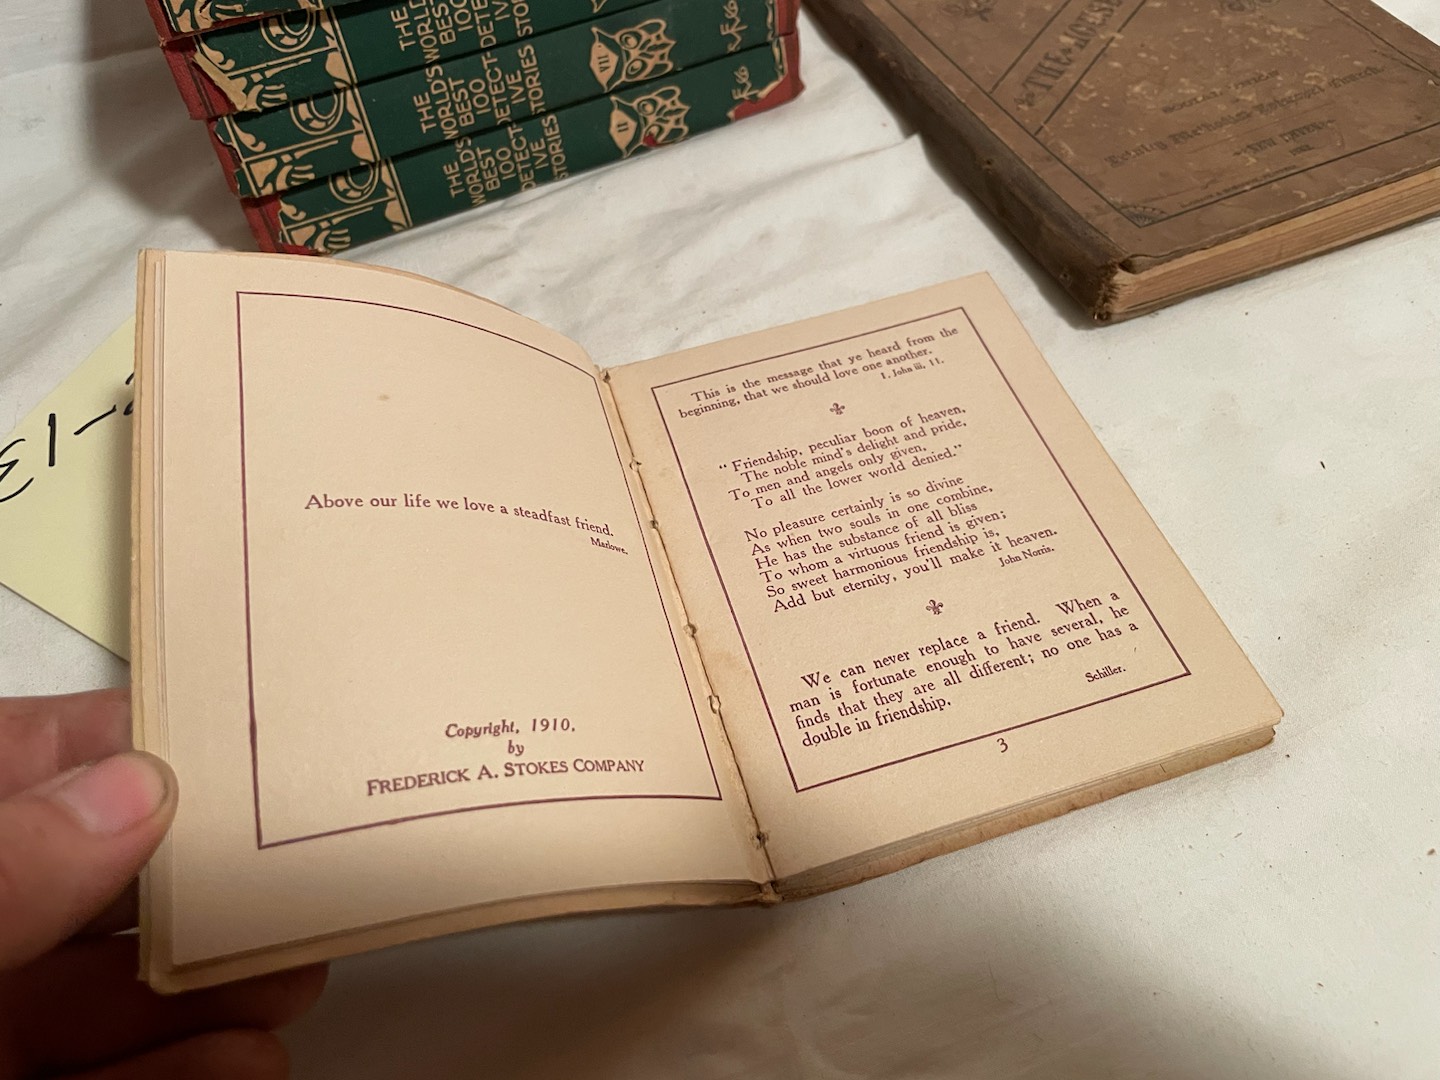 THE
WORLD'S
BEST
100
DETECT-
IVE
STORIES
THE
WORLD'S
BEST
100
DETECT-
IVE
STORIES
VII
THE
WORLD'S
BEST
100
DETECT-
IVE
STORIES
II
THE
SOCIAL UNION
Trinity Methodist Episcopal Church.
NEW HAVEN
31-
Above our life we love a steadfast friend.
Marlowe.
Copyright, 1910,
by
FREDERICK A. STOKES COMPANY
This is the message that ye heard from the
beginning, that we should love one another.
I. John iii, 11.
“ Friendship, peculiar boon of heaven,
The noble mind's delight and pride,
To men and angels only given,
To all the lower world denied.”
No pleasure certainly is so divine
As when two souls in one combine,
He has the substance of all bliss
To whom a virtuous friend is given;
So sweet harmonious friendship is,
Add but eternity, you'll make it heaven.
John Norris.
We can never replace a friend. When a
man is fortunate enough to have several, he
finds that they are all different; no one has a
double in friendship.
Schiller.
3